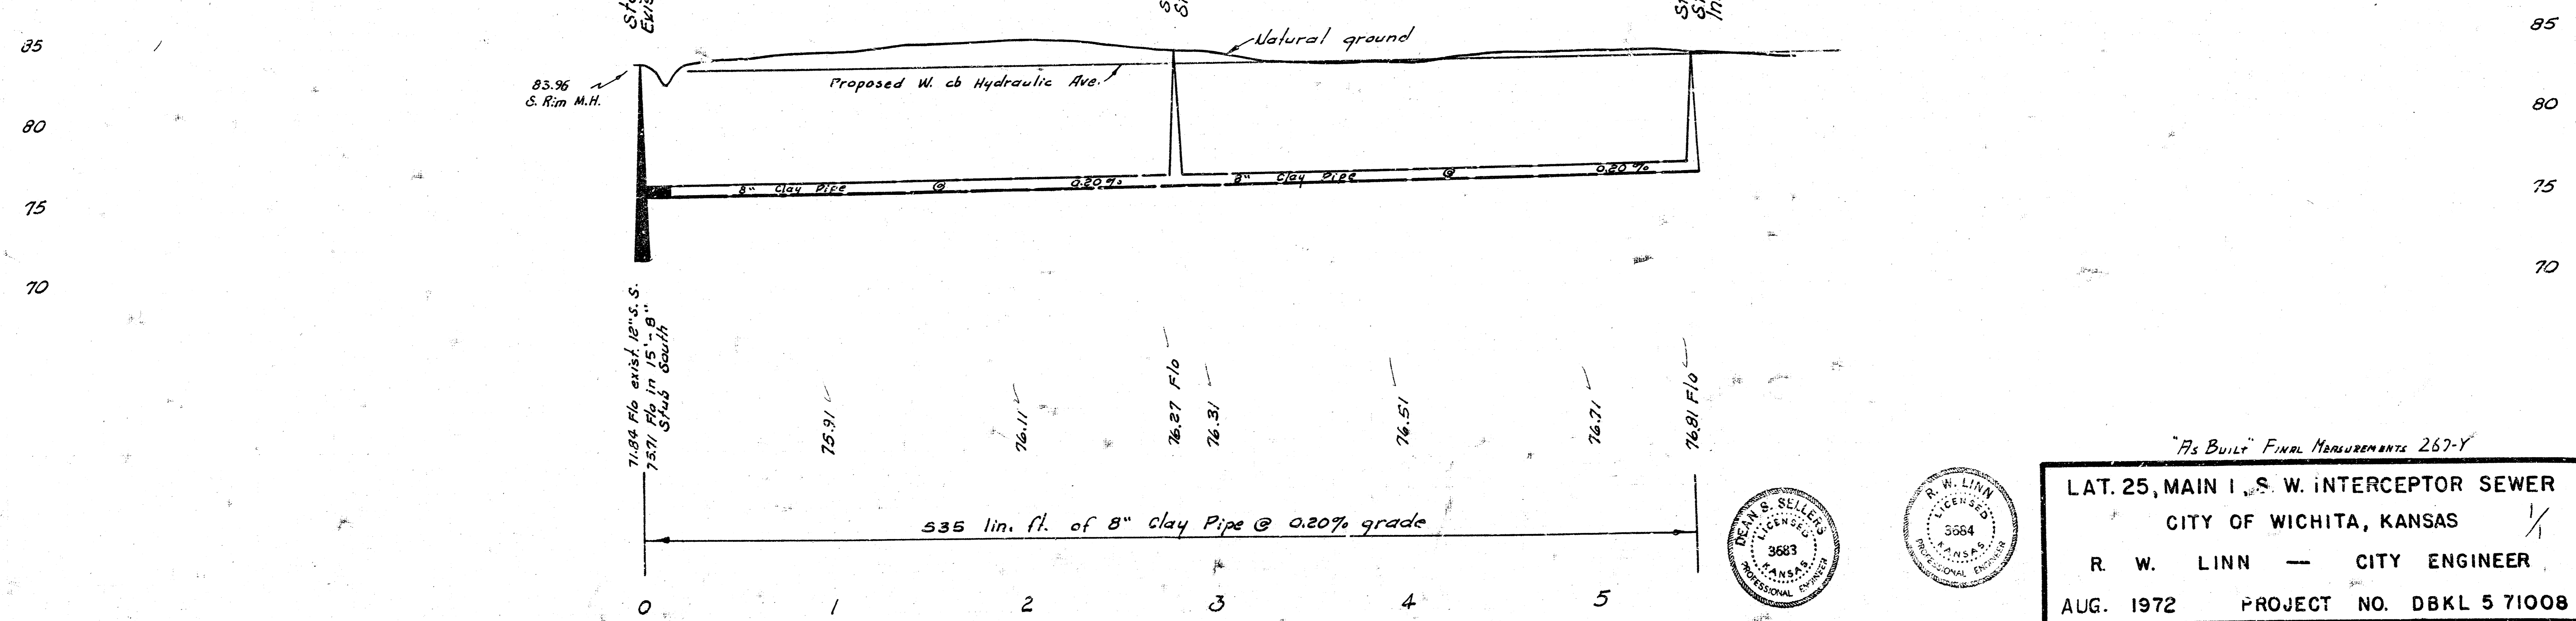 85
85
Natural ground
83.96
S. Rim M.H.
Proposed W. cb Hydraulic Ave.
80
80
8" Clay Pipe @ 0.20%
8" Clay Pipe @ 0.20%
75
75
70
70
71.84 Flo exist. 12" S.S.
75.71 Flo in 15'-8"
Stub South
75.91
76.11
76.27 Flo
76.31
76.51
76.71
76.81 Flo
535 lin. ft. of 8" Clay Pipe @ 0.20% grade
0 1 2 3 4 5
DEAN S. SELLERS
LICENSED
3683
KANSAS
PROFESSIONAL ENGINEER
R. W. LINN
LICENSED
3684
KANSAS
PROFESSIONAL ENGINEER
"As Built" Final Measurements 267-Y
LAT. 25, MAIN 1, S. W. INTERCEPTOR SEWER
CITY OF WICHITA, KANSAS 1/1
R. W. LINN — CITY ENGINEER
AUG. 1972 PROJECT NO. DBKL 5 71008